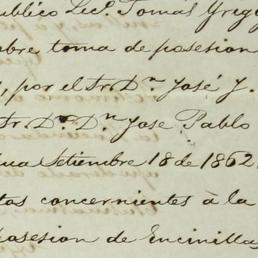 publico Lic. Tomás Greg
bre toma de posesion
, por el Sr. Dn. José J.
Sr. Dr. Dn. Jose Pablo
ua Setiembre 18 de 1862
tas concernientes à la
posesion de Encinillas